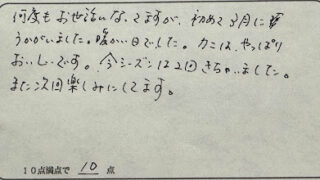 何度もお世話になってますが、初めて3月に
うかがいました。暖かい日でした。カニは、やっぱり
おいしいです。今シーズンは2回きちゃいました。
また次回楽しみにしてます。
10点満点で 10 点